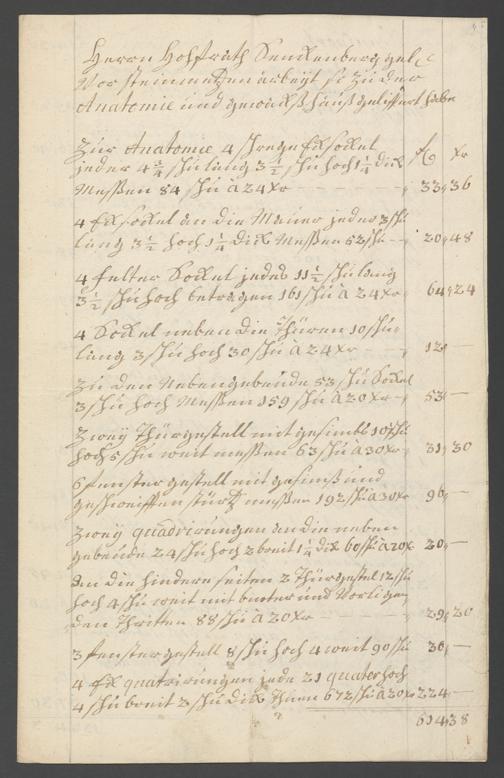 Herrn Hoffrath Senckenberg gel
Vor steinmetzen arbeyt so zu der
Anatomie und gewackßhauß geliffert habe
Zur Anatomie 4 schrege Eksockel fl xr
jeder 4 3/4 schu lang 3 1/2 schu hoch 1 1/4 dick
Messen 84 schu a 24 xr 33,, 36
4 Eksockel an die Mauer jeder 3 schu
lang 3 1/2 hoch 1 1/4 dick Messen 52 schu 20,, 48
4 felter Sockel jedes 11 1/2 schu lang
3 1/2 schu hoch betragen 161 schu a 24 xr 64,, 24
4 Sockel neben die Thüren 10 schu
lang 3 schu hoch 30 schu a 24 xr 12,, —
Zu den Nebengebeude 53 schu Sockel
3 schu hoch Messen 159 schu a 20 xr 53,, —
Zwey Thürgestell mit gesimbs 10 schu
hoch 5 schu weit messen 63 schu a 30 xr 31,, 30
6 fenster gestell mit gesimß und
geschweifften stürtz messen 192 schu a 30 xr 96,, —
Zwey quadrirungen an die neben
gebeude 24 schu hoch 2 breit 1 1/4 dik 60 schu a 20 xr 20,, —
an die hindere seiten 2 Thürgestel 12 schu
hoch 4 schu weit mit und Vorligen
den Thritten 88 schu a 20 xr 29,, 20
3 fenstergestell 8 schu hoch 4 weit 90 schu 30,, —
4 Ek quatrirungen jede 21 quater hoch
4 schu breit 2 schu dick Thuen 672 schu a 20 xr 224,, —
614,, 38